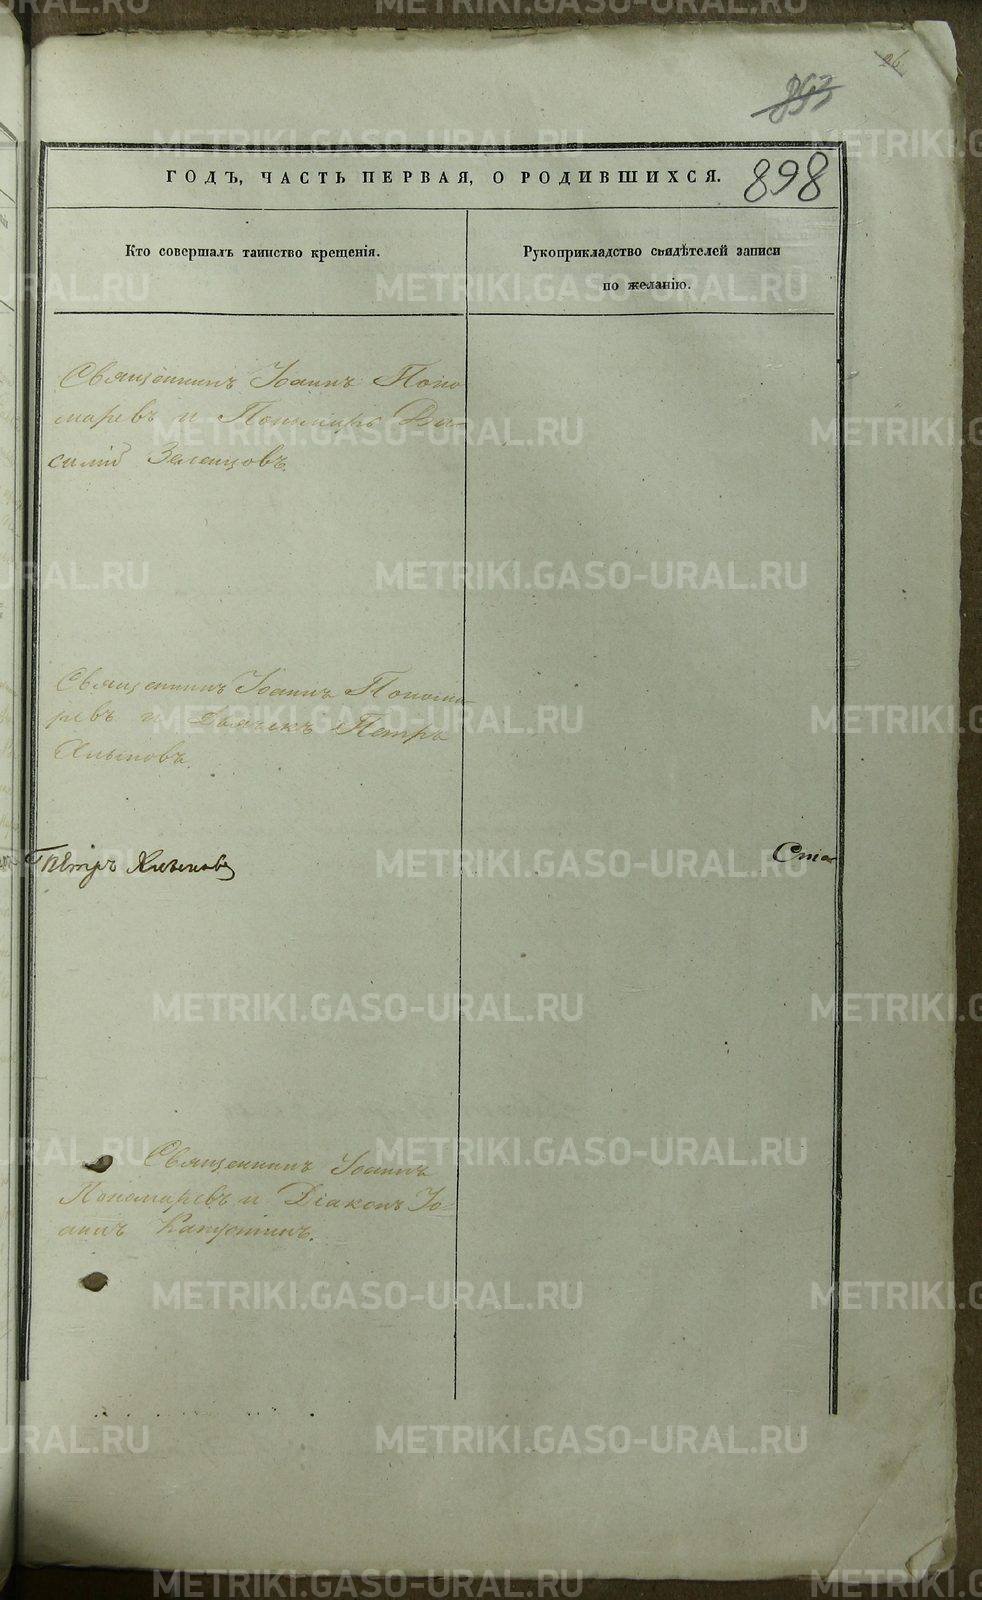 898
ГОДЪ, ЧАСТЬ ПЕРВАЯ, О РОДИВШИХСЯ.
Кто совершалъ таинство крещенія.
Рукоприкладство свидѣтелей записи
по желанію.
Священникъ Іоаннъ Поно
маревъ и Пономарь Ва-
силій Зеленцовъ.
Священникъ Іоаннъ Понома
ревъ и Дьячекъ Петръ
Хлыновъ.
Петръ Хлыновъ
Священникъ Іоаннъ
Пономаревъ и Діаконъ Іо
аннъ Капустинъ.
METRIKI.GASO-URAL.RU